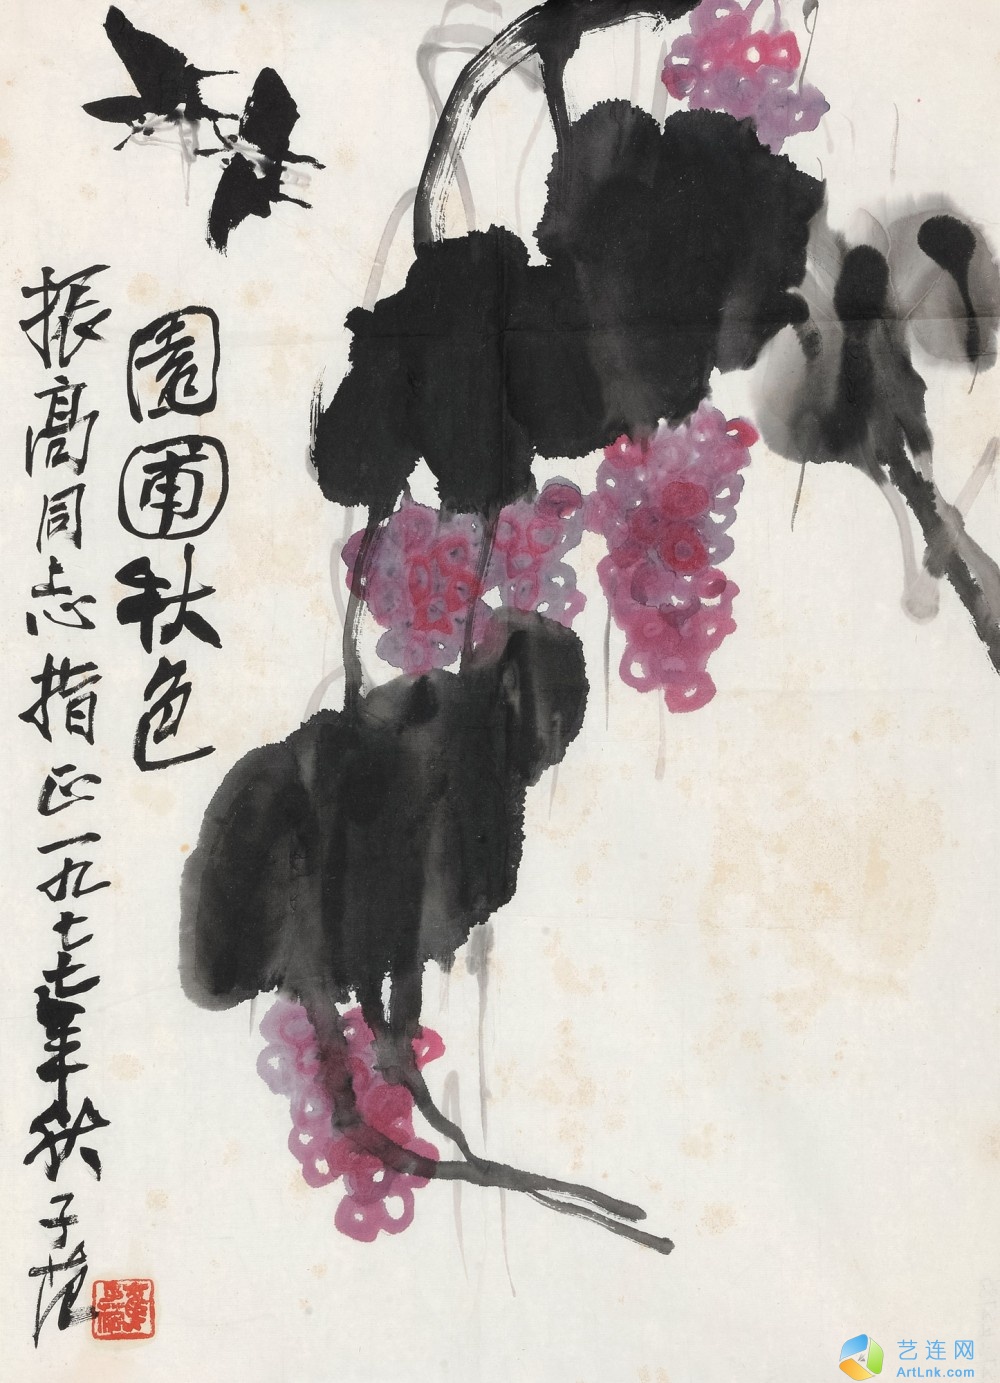 園圃秋色
振高同志指正一九七七年秋子范
艺连网
ArtLnk.com